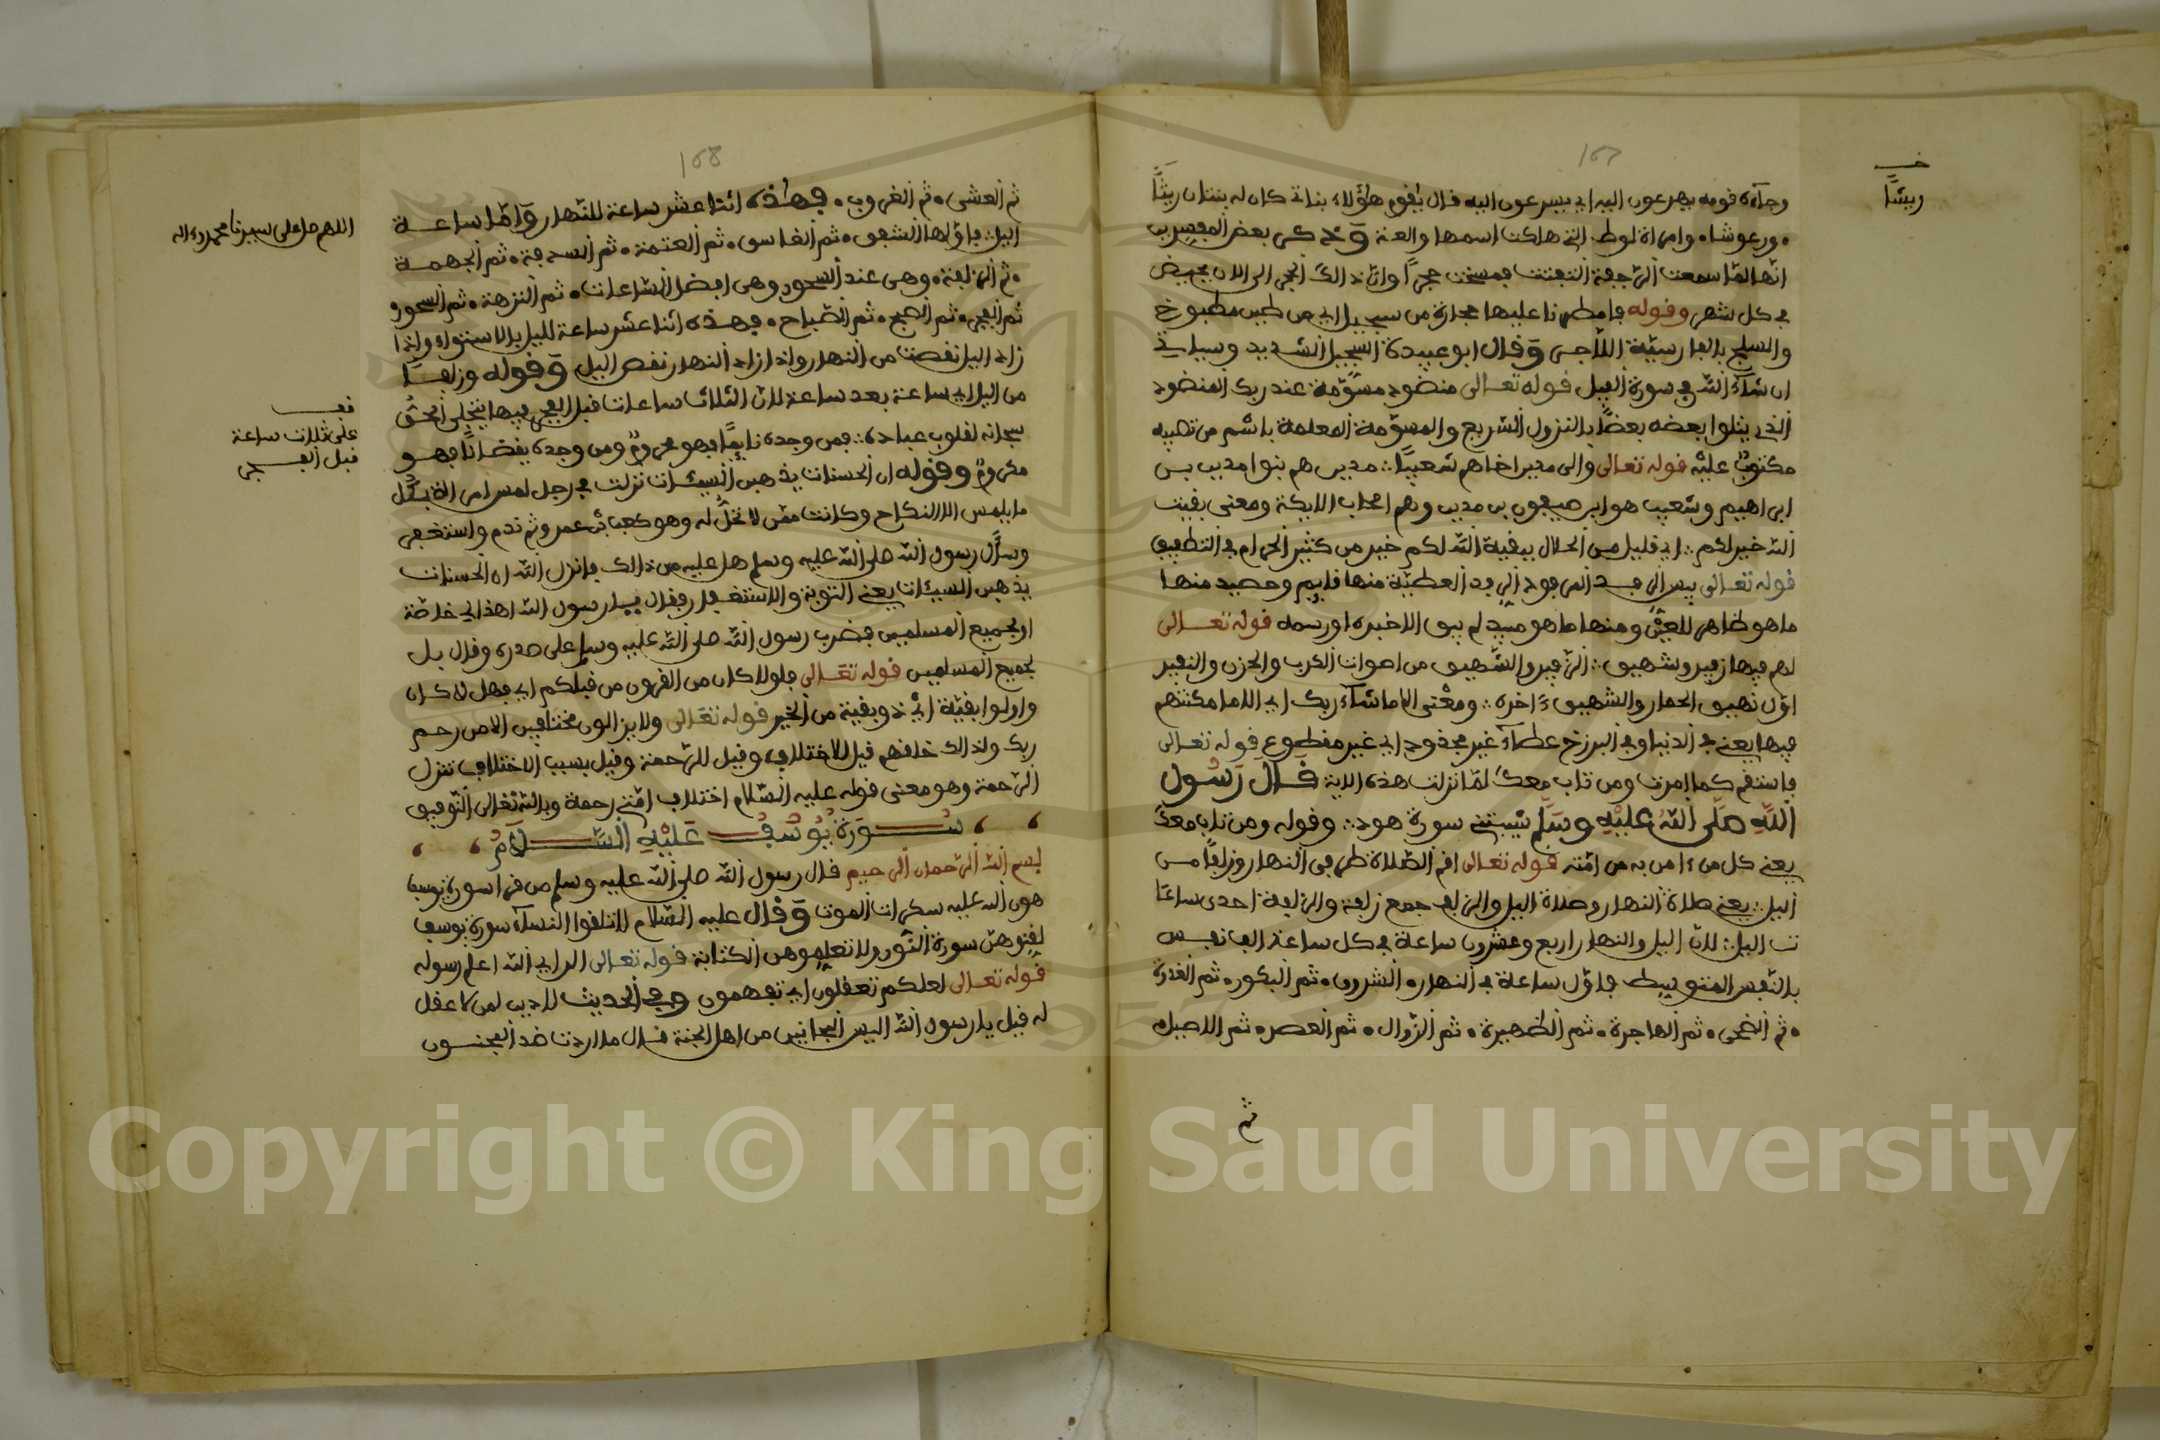 157
خـ
ريشًا
وجآءه قومه يهرعون اليه اي يسرعون اليه قال يٰقوم هٰؤلاء بناتي كان له بنتان ريثًا
• ورعوشا • وامراة لوط التي هلكت اسمها والعة وَذكر بعض المفسرين
انّها لمّا سمعت الرّجفة التفتت فمسخت حجرًا وانّ ذالك الحجر الى الان يحيض
في كل شهر وقوله فامطرنا عليها حجارة من سجيل اي من طين مطبوخ
والسلج بالفارسيّة اللاجر وَقال ابو عبيدة السّجيل الشديد وسياتي
ان شآء اللّه في سورة الفيل قوله تعالى منضود مسوّمة عند ربك المنضود
الذي يتلوا بعضه بعضًا بالنزول السّريع والمسوّمة المعلمة باسم من تصيبه
مكتوبٌ عليه قوله تعالى والى مدين اخاهم شعيبًا ∴ مدين هم بنوا مدين بن
ابراهيم وشعيب هو ابن صيفون بن مدين وهم اصحاب الايكة ومعنى بقيت
اللّه خير لكم ∴ اي قليل من الحلال ببقية اللّه لكم خير من كثير الحرام في التطفيف
قوله تعالى بيس الرفد المرفود الرفد العطيّة منها قايم وحصيد منها
ما هو ظاهر للعين ومنها ما هو مبيد لم يبق الا خبره او رسمه قوله تعالى
لهم فيها زفير وشهيق ∴ الزّفير والشّهيق من اصوات الكرب والحزن والزفير
اوّل نهيق الحمار والشهيق ءاخره ∴ ومعنى الا ما شآء ربك اي الا ما مكثهم
فيها يعني في الدنيا وفي البرزخ عطآء غير مجذوذ اي غير مقطوع قوله تعالى
فاستقم كما امرت ومن تاب معك لمّا نزلت هذه الاية قال رسول
اللّه صلّى اللّه عليه وسلّم شيبتني سورة هود ∴ وقوله ومن تاب معك
يعني كل من ءامن به من امّته قوله تعالى اقم الصّلاة طرفي النهار وزلفًا من
اليل ∴ يعني صلاة النهار وصلاة اليل والزلف جمع زلفة والزلفة احدى ساعا
ت اليل ∴ لانّ اليل والنهار اربع وعشرون ساعة في كل ساعة الف نفس
بالنّفس المتوسط فاوّل ساعة في النهار • الشروق • ثم البكور • ثم الغدوة
• ثم الضحى • ثم الهاجرة • ثم الظهيرة • ثم الزّوال • ثم العصر • ثم الاصيل •
ثم
158
ثم العشي • ثم الغروب • فهٰذه اثنا عشر ساعة للنّهار وَامّا ساعة
اليل ∴ فاوّلها الشفق • ثم الغاسق • ثم العتمة • ثم السدفة • ثم الجهمة
• ثم الزلفة • وهي عند السحور وهي افضل السّاعات • ثم النزهة • ثم السحور
ثم الفجر • ثم الصبح • ثم الصّباح • فهٰذه اثنا عشر ساعة لليل بالاستواء واذا
زاد اليل نقصت من النهار واذا زاد النهار نقص اليل وَقوله وزلفًا
من اليل اي ساعة بعد ساعة لانّ الثلاث ساعات قبل الفجر فيها يتجلى الحقّ
سبحانه لقلوب عباده ∴ فمن وجده نايمًا فهو محروم ومن وجده يقضانًا فهو
مكروم وقوله ان الحسنات يذهبن السيئات نزلت في رجل لمس امراة بكل
ما يلمس الا النكاح وكانت ممّن لا تحلّ له وهو كعب بن عمرو ثم ندم واستغفر
وسال رسول اللّه صلى اللّه عليه وسلم هل عليه من ذالك فانزل اللّه ان الحسنات
يذهبن السيئات يعني التوبة والاستغفار فقال يا رسول اللّه اهذا لي خاصّة
او لجميع المسلمين فضرب رسول اللّه صلى اللّه عليه وسلم على صدره وقال بل
لجميع المسلمين قوله تعالى فلولا كان من القرون من قبلكم اي فهل لا كان
واولوا بقيّة اي ذو بقية من الخير قوله تعالى ولا يزالون مختلفين الا من رحم
ربك ولذالك خلقهم قيل للاختلاف وقيل للرّحمة وقيل بسبب الاختلاف تنزل
الرّحمة وهو معنى قوله عليه السّلام اختلاف امّتي رحمة وباللّه تعالى التّوفيق
سورة يوسف عليه السلام
بسم اللّه الرّحمان الرحيم قال رسول اللّه صلى اللّه عليه وسلم من قرا سورة يوسف
هون اللّه عليه سكرات الموت وَقال عليه السّلام لا تلقوا النسآء سورة يوسف
لقنوهن سورة النّور ولا تعلموهن الكتابة قوله تعالى الر اي انا اللّه اعلم رسوله
قوله تعالى لعلكم تعقلون اي تفهمون وفي الحديث لا دين لمن لا عقل
له قيل يا رسول اللّه اليس المجانين من اهل الجنة قال ما اردت ضد المجنون
اللهم صل على سيدنا محمد وءاله
قف
على ثلاث ساعة
قبل الفجر
Copyright © King Saud University